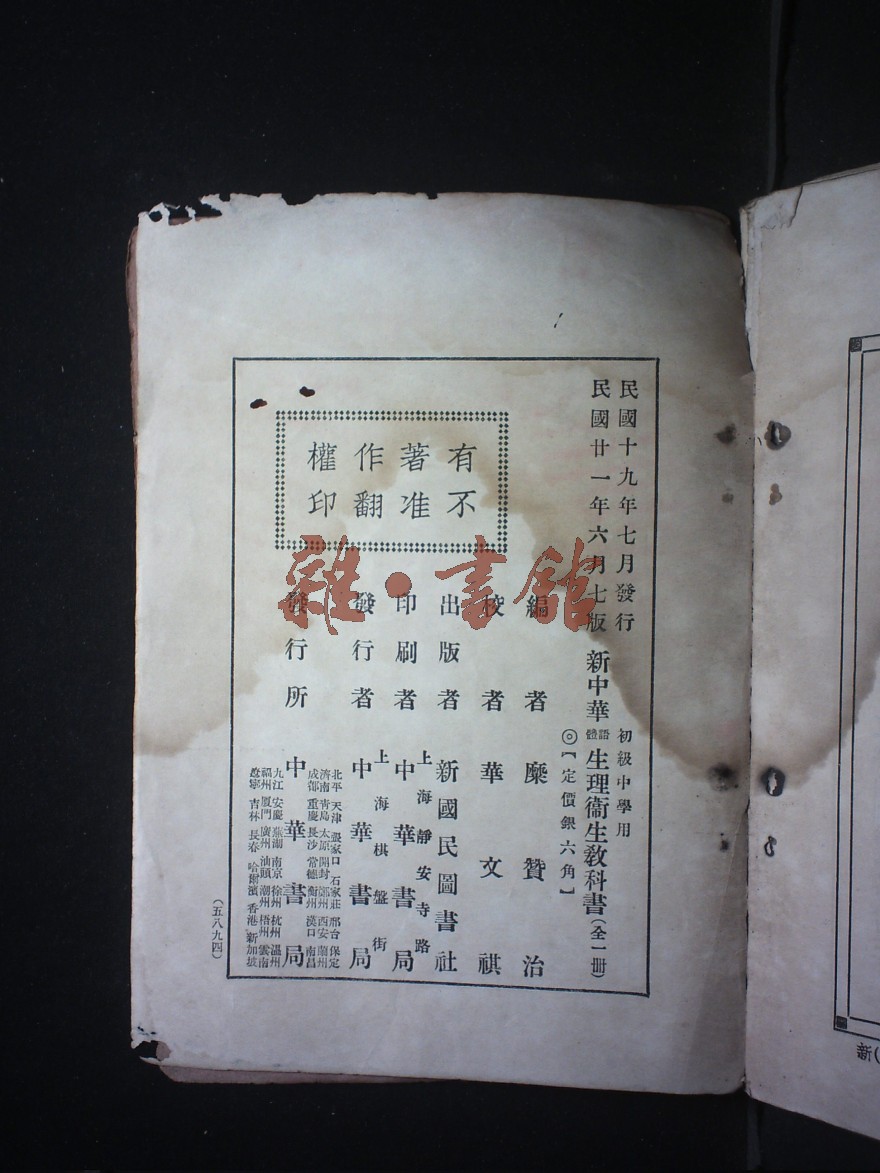 民國十九年七月發行
民國廿一年六月七版
初級中學用
新中華語體生理衞生敎科書(全一册)
◎【定價銀六角】
編者 糜贊治
校者 華文祺
出版者 新國民圖書社
上海靜安寺路
印刷者 中華書局
上海棋盤街
發行者 中華書局
發行所 中華書局
北平 天津 張家口 石家莊 邢台 保定
濟南 靑島 太原 開封 鄭州 西安 蘭州
成都 重慶 長沙 常德 衡州 漢口 南昌
九江 安慶 蕪湖 南京 徐州 杭州 溫州
福州 厦門 廣州 汕頭 潮州 梧州 雲南
遼寧 吉林 長春 哈爾濱 香港 新加坡
(五八九四)
有不
著准
作翻
權印
雜·書館
新(